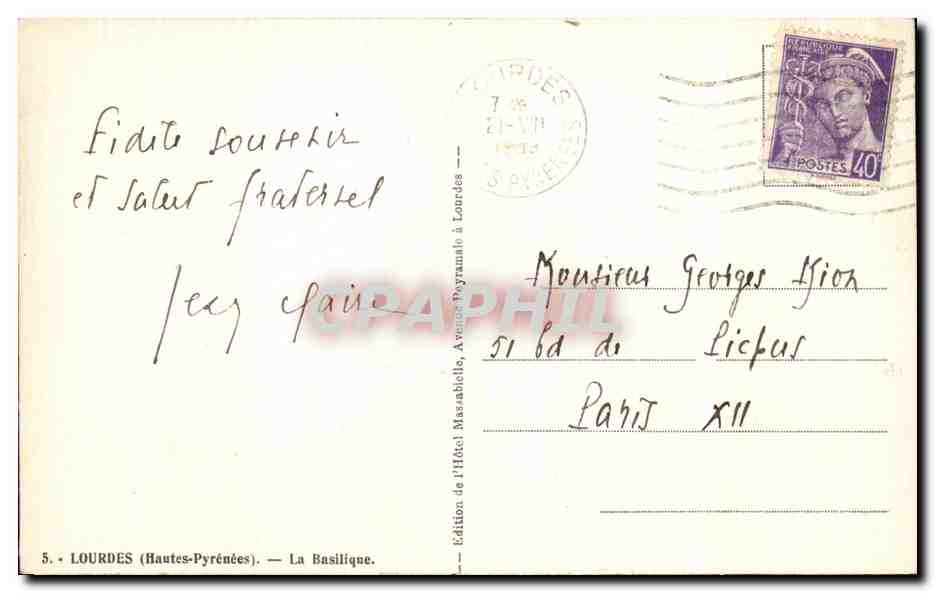 Fidèle souvenir
et salut fraternel
Jean Claire
LOURDES
21-VII
PYRENEES
REPUBLIQUE
FRANÇAISE
POSTES 40
Monsieur Georges
51 bd de Picpus
Paris XII
Edition de l'Hôtel Massabielle, Avenue Peyramale à Lourdes
5. - LOURDES (Hautes-Pyrénées). — La Basilique.
CPAPHIL